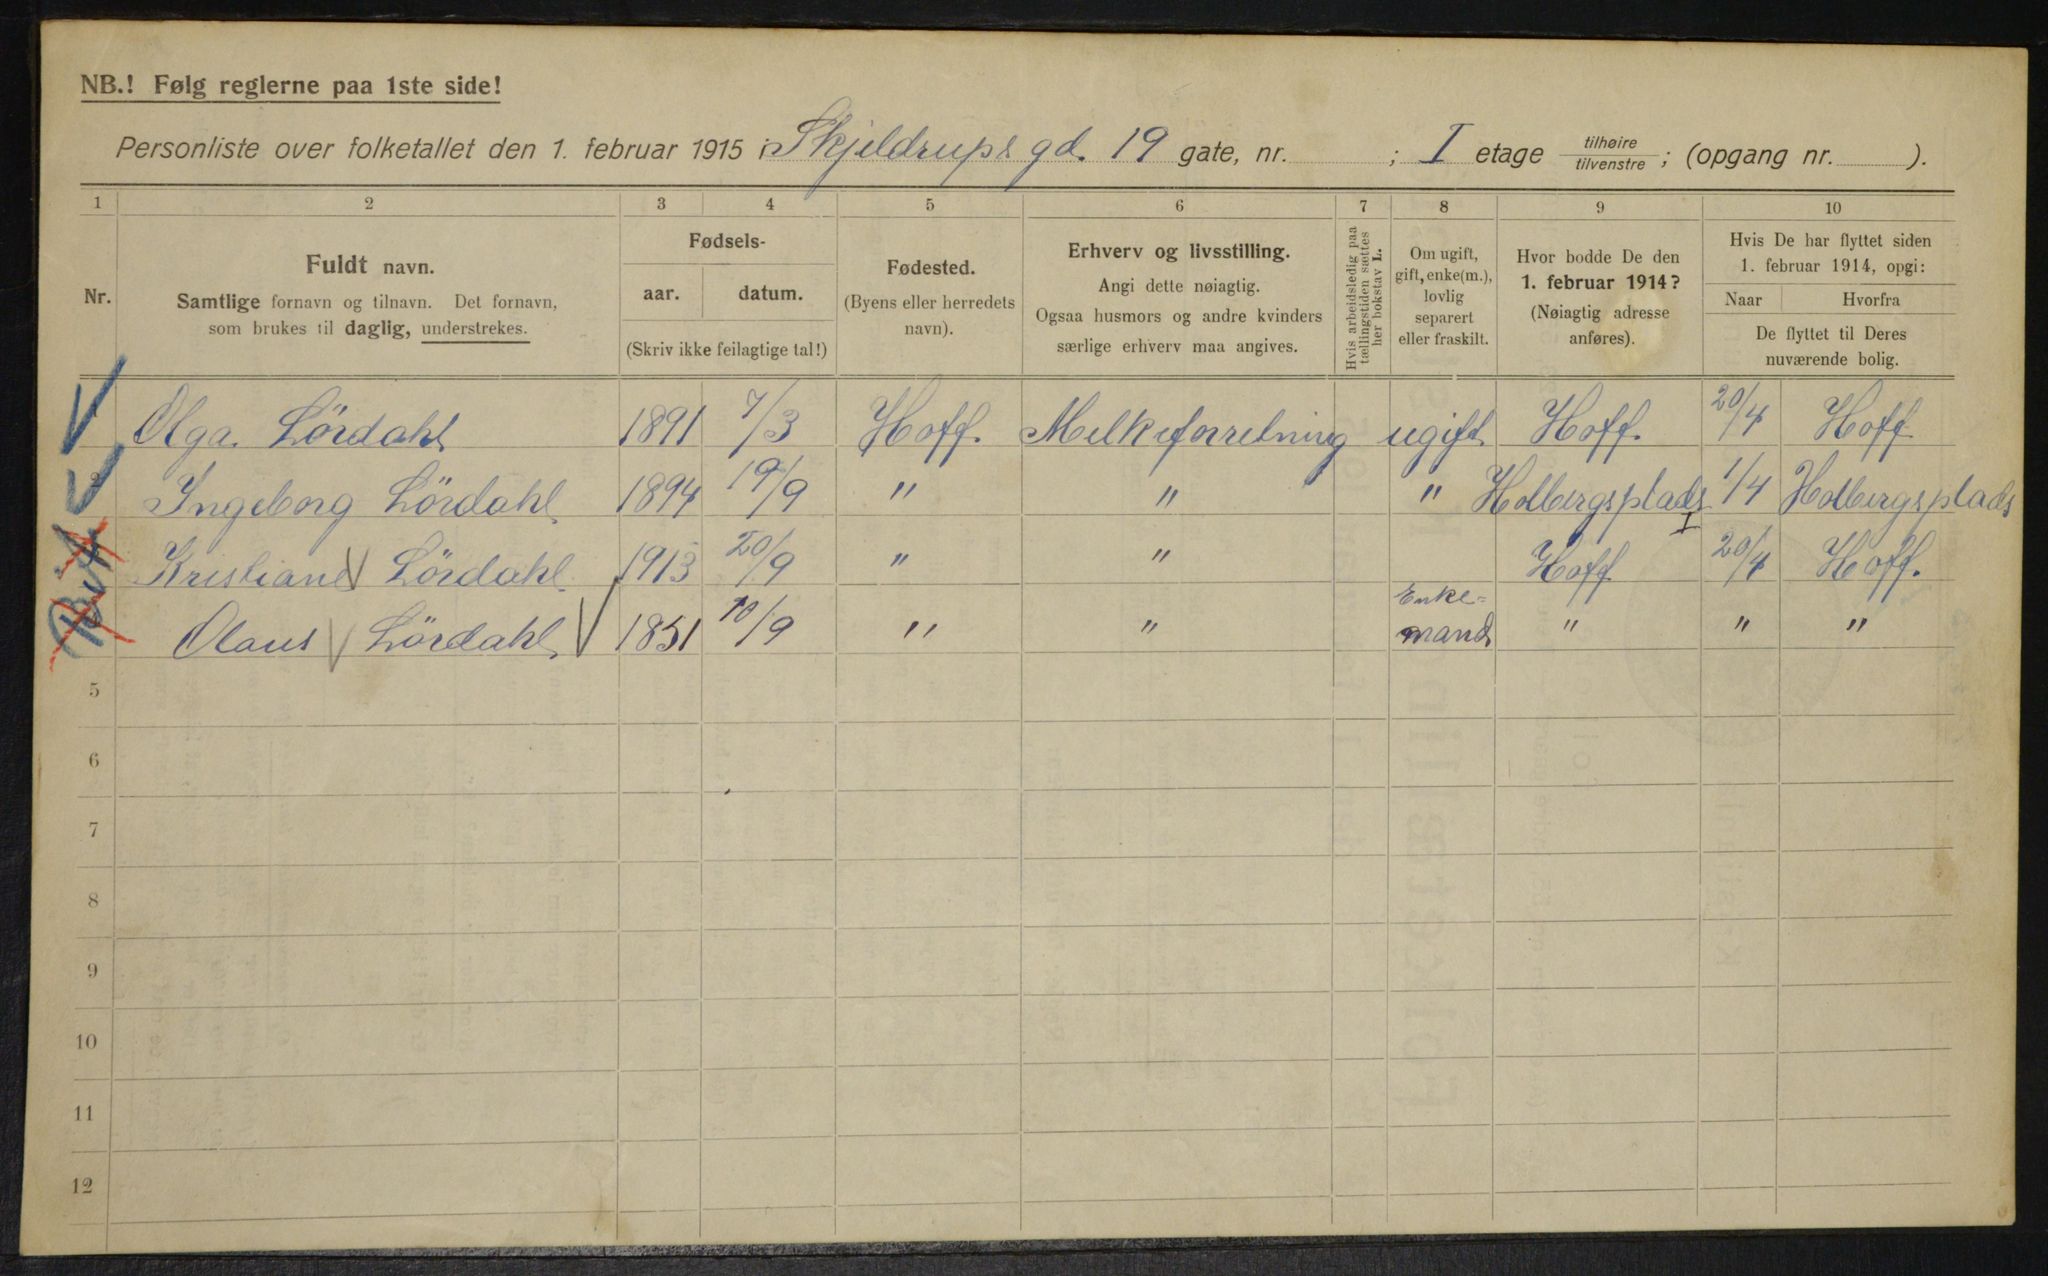 NB.! Følg reglerne paa 1ste side!
Personliste over folketallet den 1. februar 1915 i Skjeldrups gd. 19 gate, nr. ; I etage tilhøire / tilvenstre ; (opgang nr. ).
1 2 3 4 5 6 7 8 9 10
Nr.
Fuldt navn.
Samtlige fornavn og tilnavn. Det fornavn,
som brukes til daglig, understrekes.
Fødsels-
aar. datum.
(Skriv ikke feilagtige tal!)
Fødested.
(Byens eller herredets
navn).
Erhverv og livsstilling.
Angi dette nøiagtig.
Ogsaa husmors og andre kvinders
særlige erhverv maa angives.
Hvis arbeidsledig paa
tællingstiden sættes
her bokstav L.
Om ugift,
gift, enke(m.),
lovlig
separert
eller fraskilt.
Hvor bodde De den
1. februar 1914?
(Nøiagtig adresse
anføres).
Hvis De har flyttet siden
1. februar 1914, opgi:
Naar Hvorfra
De flyttet til Deres
nuværende bolig.
Olga Lördahl 1891 7/3 Hoff. Melkeforretning ugift Hoff. 20/4 Hoff
Ingeborg Lördahl 1894 19/9 " " " Holbergsplads I 1/4 Holbergsplads
Kristiane Lördahl 1913 20/9 " " Hoff 20/4 Hoff.
Olaus Lördahl 1851 10/9 " " Enke=
mand " " "
5
6
7
8
9
10
11
12